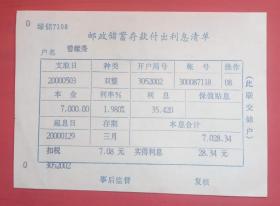 绿锦7108
邮政储蓄存款付出利息清单
户名
支取日 种类 开户局号 帐号 操作
20000503 双整 3052002 300087118 08
本金 利率% 利息 保值贴息
7,000.00 1.980% 35.420
起息日 存期 本息合计
20000129 三月 7,028.34
扣税 7.08 元 实得利息 28.34 元
3052002
事后监督 复核
(此联交储户)